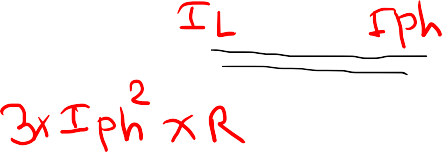 IL Iph
3xIph²xR